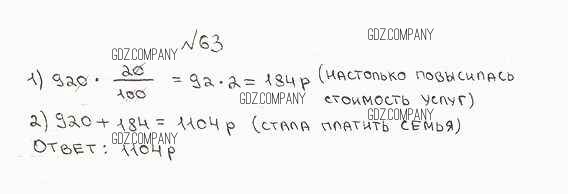 №63
GDZ.COMPANY
GDZ.COMPANY
1) 920 · 20/100 = 92 · 2 = 184 р (настолько повысилась
GDZ.COMPANY
стоимость услуг)
2) 920 + 184 = 1104 р (стала платить семья)
GDZ.COMPANY
GDZ.COMPANY
Ответ: 1104 р